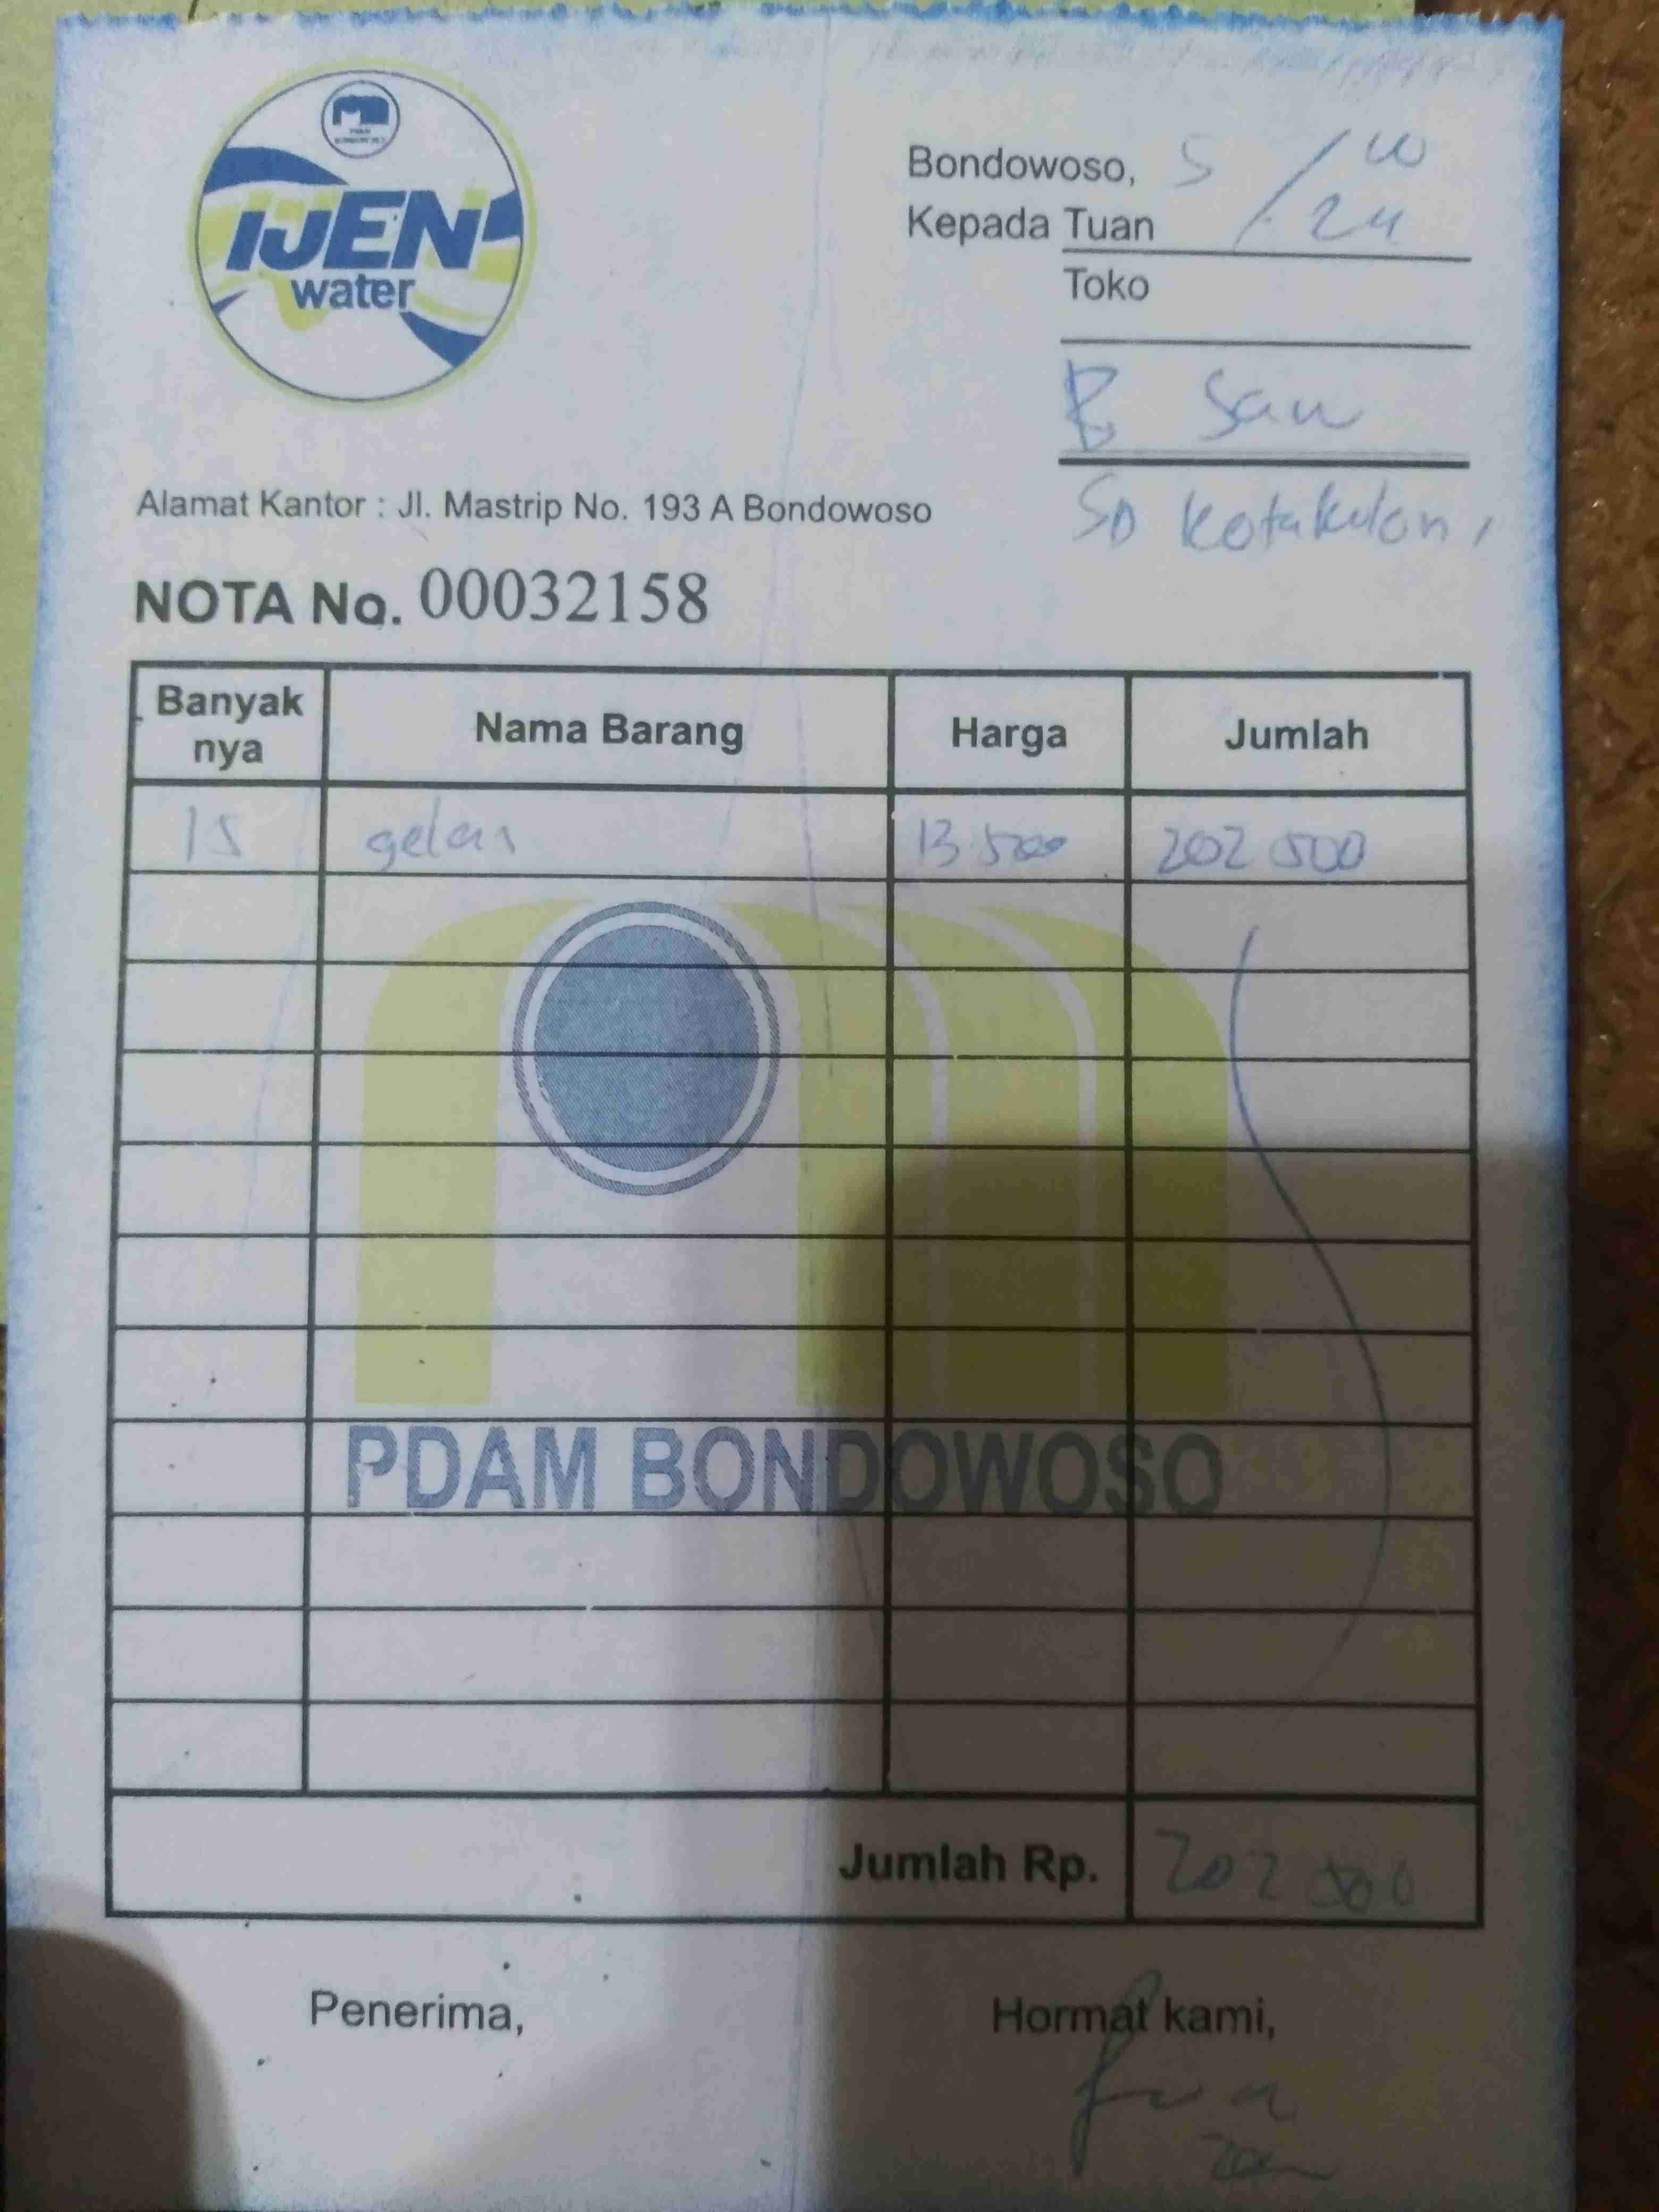 IJEN
water
Bondowoso, 5 / 10
Kepada Tuan 24
Toko
SD kotakulon 1
Alamat Kantor : Jl. Mastrip No. 193 A Bondowoso
NOTA No. 00032158
Banyak nya Nama Barang Harga Jumlah
15 gelas 13.500 202 500
PDAM BONDOWOSO
Jumlah Rp. 202 500
Penerima, Hormat kami,